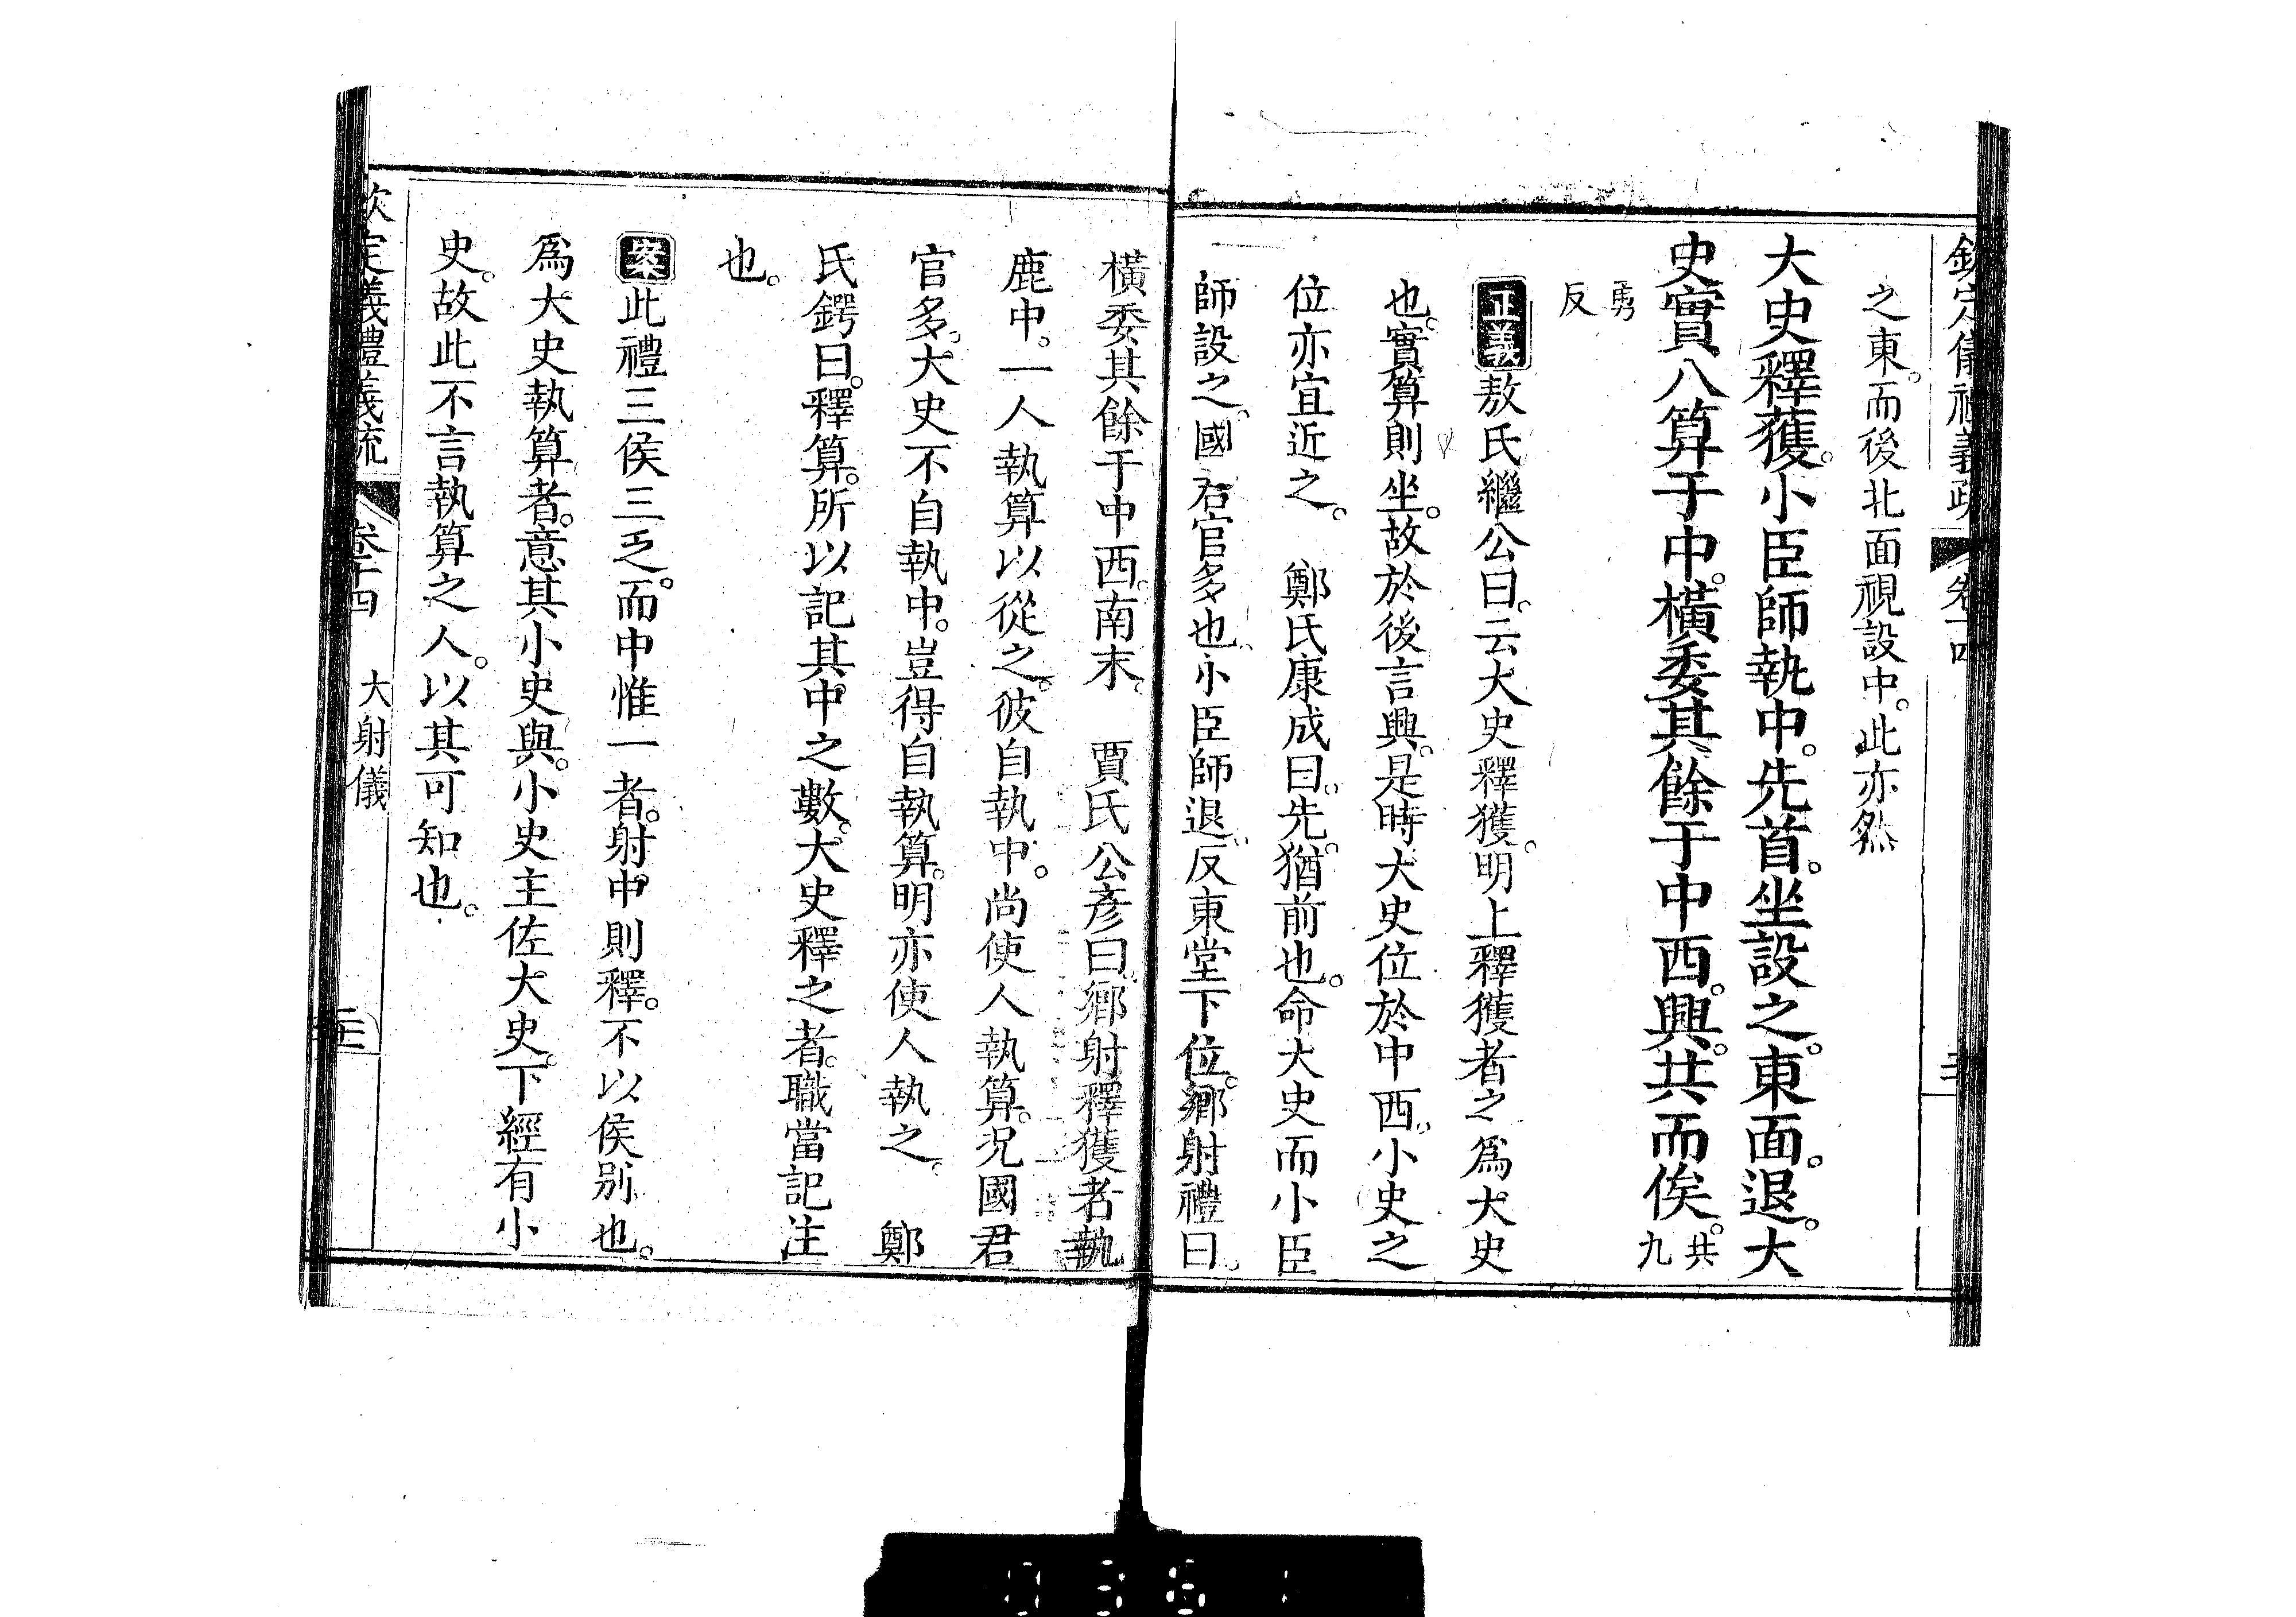 欽定儀禮義疏 卷十四
之東。而後北面視設中。此亦然
大史釋獲。小臣師執中。先首。坐設之。東面。退。大
史實八算于中。橫委其餘于中西。興。共而俟。共九
勇反
正義敖氏繼公曰。云大史釋獲。明上釋獲者之爲大史
也。實算則坐。故於後言興。是時大史位於中西。小史之
位亦宜近之。 鄭氏康成曰。先。猶前也。命大史而小臣
師設之。國君官多也。小臣師退。反東堂下位。鄉射禮曰。
橫委其餘于中西。南末。 賈氏公彥曰。鄉射釋獲者執
鹿中。一人執算以從之。彼自執中。尚使人執算。况國君
官多。大史不自執中。豈得自執算。明亦使人執之。 鄭
氏鍔曰。釋算。所以記其中之數。大史釋之者。職當記注
也。
案此禮三侯三乏。而中惟一者。射中則釋。不以侯别也。
爲大史執算者。意其小史與。小史主佐大史。下經有小
史。故此不言執算之人。以其可知也。
欽定義禮義疏 卷十四 大射儀